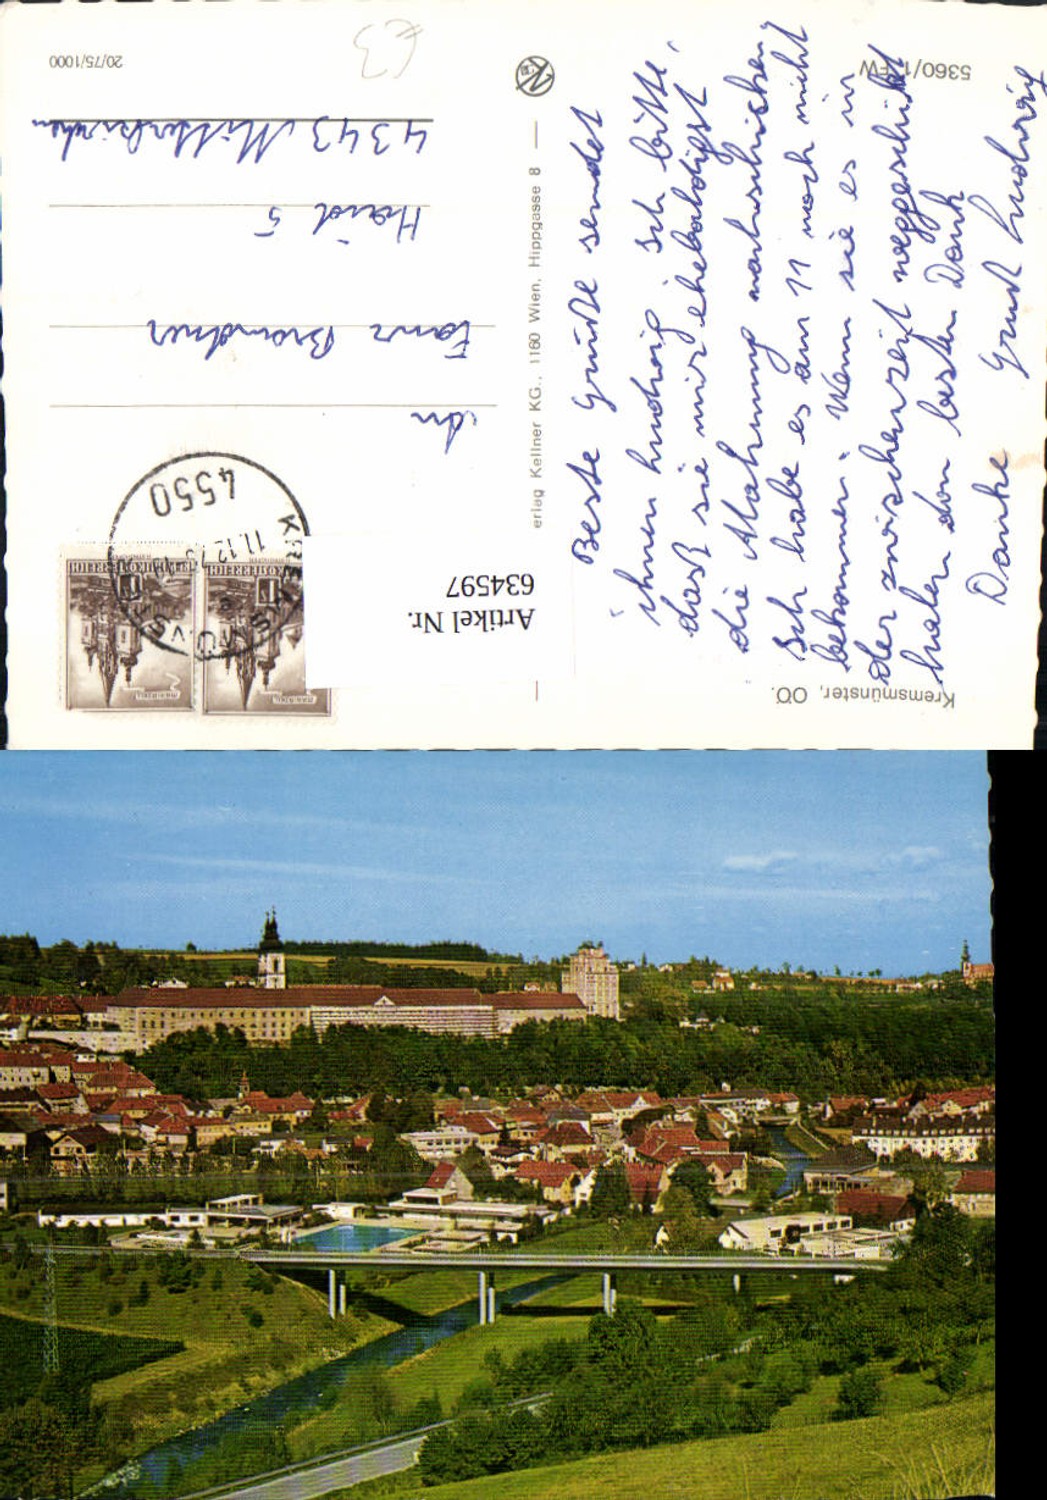 Kremsmünster, OÖ.
5360/1 FW
Beste Grüße sendet
ihnen Ludwig Ich bitte,
daß sie mir ehebaldigst
die Mahnung nachschicken
Ich habe es am 11 noch nicht
bekommen. Wenn sie es in
der zwischenzeit weggeschickt
haben dan besten Dank
Danke Gruß Ludwig
erlag Kellner KG., 1160 Wien, Hippgasse 8
Artikel Nr.
634597
REPUBLIK ÖSTERREICH
4550
11.12.
An
Brandner
Haid 5
4343 Mitterkirchen
20/75/1000
€3